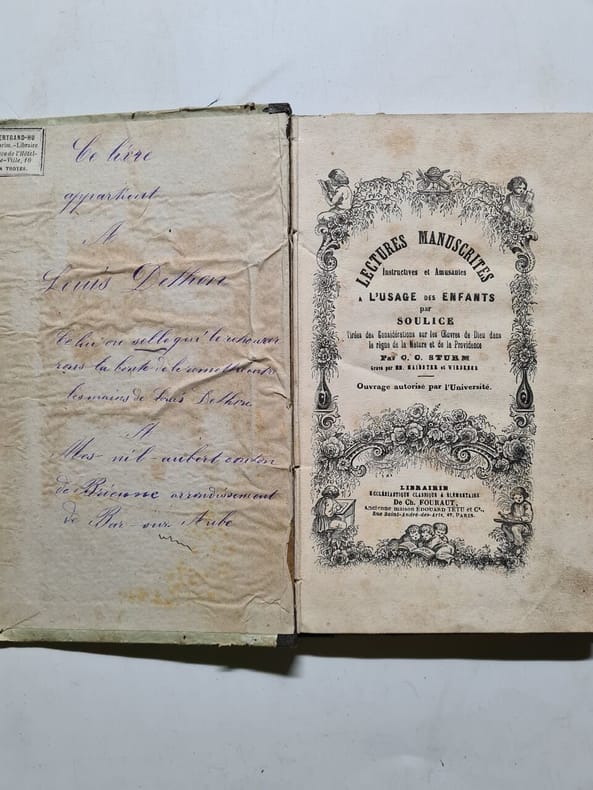 ERTRAND-HU
prim.-Libraire
ce de l'Hôtel-
e-Ville, 10
A TROYES.
Ce livre
appartient
A
Louis Dethon
Celui ou selle qui le retrouver
rons la bonté de le remettre entre
les mains de Louis Dethon
A
Mes-nil-aubert conton
de Brienne arrondissement
de Bar-sur-Aube
LECTURES MANUSCRITES
Instructives et Amusantes
A L'USAGE DES ENFANTS
par
SOULICE
Tirées des Considérations sur les Œuvres de Dieu dans
le règne de la Nature et de la Providence
Par C. C. STURM
Gravé par MM. HAINSTER et WIESENER
Ouvrage autorisé par l'Université.
LIBRAIRIE
ECCLÉSIASTIQUE CLASSIQUE & ÉLÉMENTAIRE
De Ch. FOURAUT,
Ancienne maison EDOUARD TETU et Cie.,
Rue Saint-André-des-Arts, 47, PARIS.